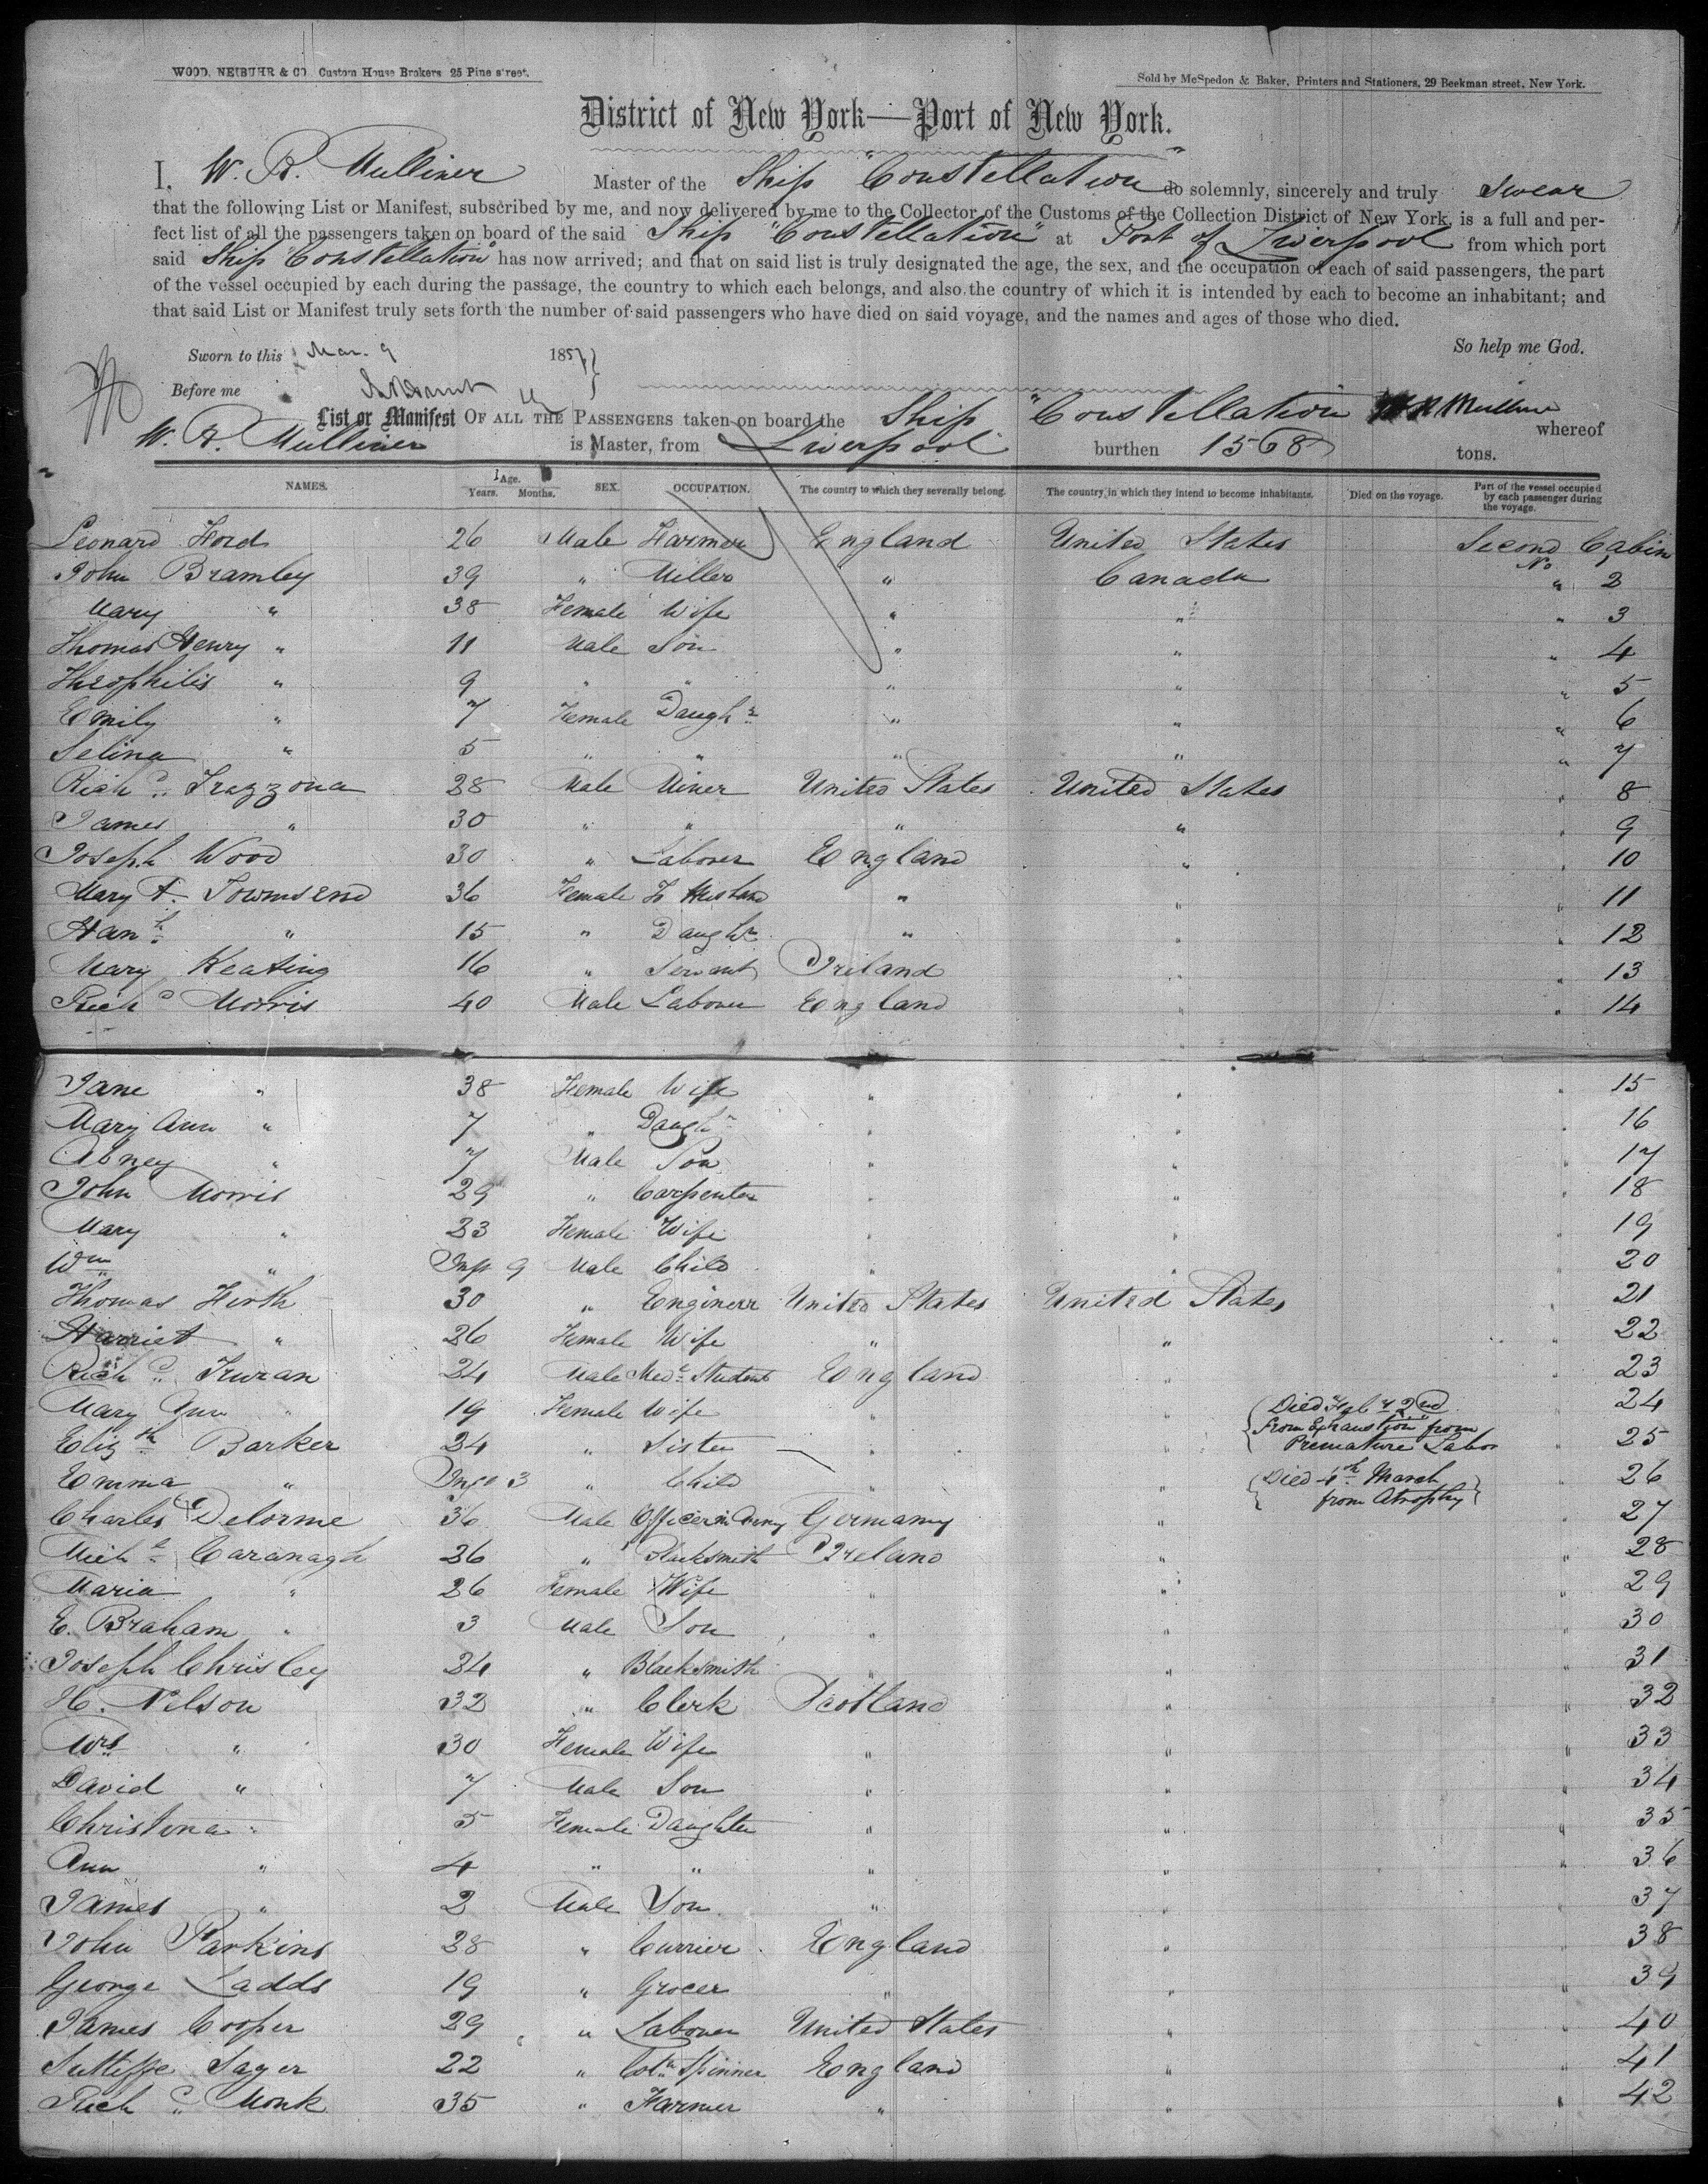 WOOD, NEIBUHR & CO. Custom House Brokers 25 Pine street.
Sold by McSpedon & Baker, Printers and Stationers, 29 Beekman street, New York.
District of New York—Port of New York.
I, W. R. Mulliner Master of the Ship "Constellation" do solemnly, sincerely and truly Swear
that the following List or Manifest, subscribed by me, and now delivered by me to the Collector of the Customs of the Collection District of New York, is a full and per-
fect list of all the passengers taken on board of the said Ship "Constellation" at Port of Liverpool from which port
said Ship "Constellation" has now arrived; and that on said list is truly designated the age, the sex, and the occupation of each of said passengers, the part
of the vessel occupied by each during the passage, the country to which each belongs, and also the country of which it is intended by each to become an inhabitant; and
that said List or Manifest truly sets forth the number of said passengers who have died on said voyage, and the names and ages of those who died.
So help me God.
Sworn to this Mar. 9 1857
Before me
List or Manifest OF ALL THE PASSENGERS taken on board the Ship "Constellation W R Mulliner whereof
W. R. Mulliner is Master, from Liverpool burthen 1568 tons.
NAMES. Age. Years. Months. SEX. OCCUPATION. The country to which they severally belong. The country in which they intend to become inhabitants. Died on the voyage. Part of the vessel occupied by each passenger during the voyage.
Leonard Ford 26 Male Farmer England United States Second Cabin
John Bramley 39 " Miller " Canada No " 2
Mary " 38 Female Wife " " " 3
Thomas Henry " 11 Male Son " " " 4
Theophilis " 9 " " " " " 5
Emily " 7 Female Daughr " " " 6
Selina " 5 " " " " " 7
Richd Trazzona 28 Male Miner United States United States " 8
James " 30 " " " " " 9
Joseph Wood 30 " Laborer England " " 10
Mary F. Townsend 36 Female To Husband " " " 11
Hanh " 15 " Daughr " " " 12
Mary Keating 16 " Servant Ireland " " 13
Richd Morris 40 Male Laborer England " " 14
Jane " 38 Female Wife " " " 15
Mary Ann " 7 " Daughr " " " 16
Abney " 7 Male Son " " " 17
John Morris 29 " Carpenter " " " 18
Mary " 23 Female Wife " " " 19
Wm " Inft 9 Male Child " " " 20
Thomas Firth 30 " Engineer United States United States " 21
Harriet " 26 Female Wife " " " 22
Richd Truran 24 Male Medl Student England " " 23
Mary Ann " 19 Female Wife " " Died Feby 22nd from Exhaustion from Premature Labor " 24
Elizth Barker 24 " Sister " " " 25
Emma " Inft 3 " Child " " Died 4th March from Atrophy " 26
Charles Delorme 36 Male Officer in Army Germany " " 27
Michl Cavanagh 26 " Blacksmith Ireland " " 28
Maria " 26 Female Wife " " " 29
E. Braham " 3 Male Son " " " 30
Joseph Chrisley 24 " Blacksmith " " " 31
H. Nelson 32 " Clerk Scotland " " 32
Mrs " 30 Female Wife " " " 33
David " 7 Male Son " " " 34
Christina " 5 Female Daughter " " " 35
Ann " 4 " " " " " 36
James " 2 Male Son " " " 37
John Parkins 28 " Currier England " " 38
George Ladds 19 " Grocer " " " 39
James Cooper 29 " Laborer United States " " 40
Sutliffe Sager 22 " Cotn Spinner England " " 41
Richd Monk 35 " Farmer " " " 42